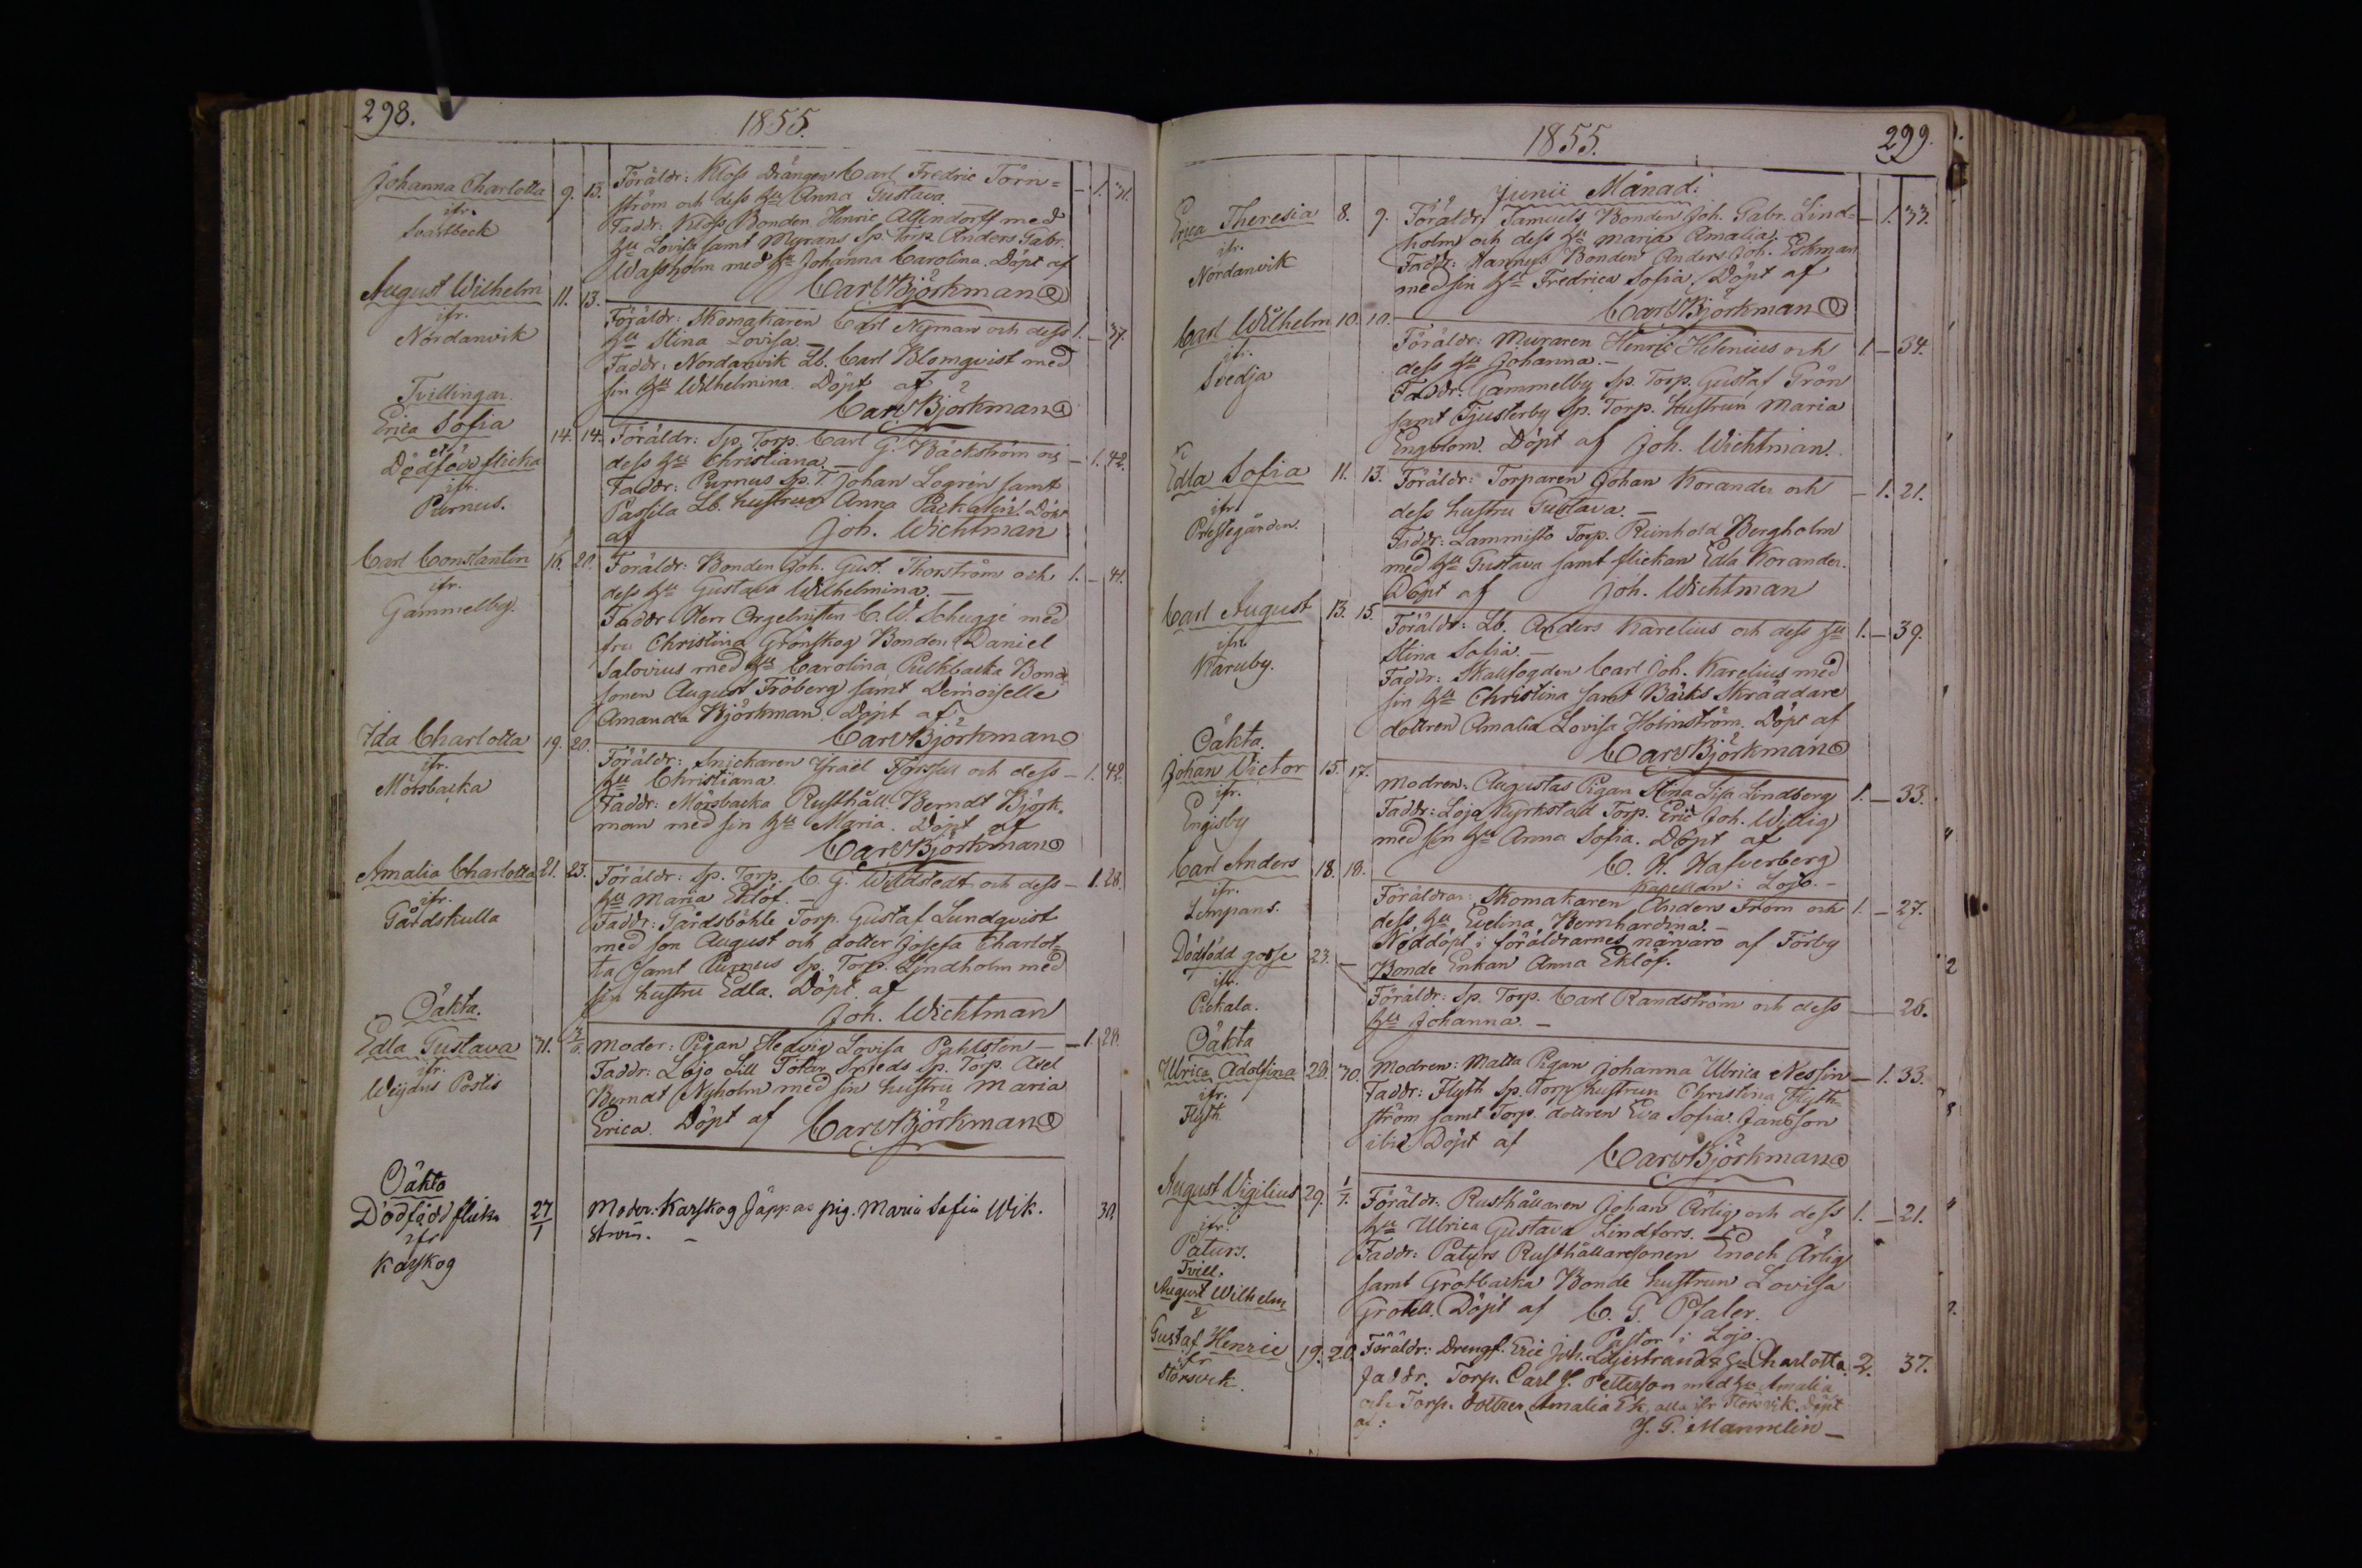 298.
1855.
Johanna Charlotta 9. 13. Föräldr: Kloss Drängen Carl Fredric Törn= — 1. 31.
ifr. ström och dess hu Anna Gustava.
Svartbeck Faddr: Klöss Bonden Henric Alfendorff med
hu Lovisa samt Myrans Sp. Torp. Anders Gabr.
Wassholm med hu Johanna Carolina. Döpt af
Carl Björkman
August Wilhelm 11. 13. Föräldr: Skomakaren Carl Nyman och dess 1. — 37.
ifr. hu Stina Lovisa. —
Nordanvik Faddr: Nordanvik Lb. Carl Blomqvist med
sin hu Wilhelmina. Döpt af
Carl Björkman
Tvillingar.
Erica Sofia 14. 14. Föräldr: Sp. Torp. Carl G. Bäckström och — 1. 42.
et dess hu Christiana. —
Dödfödd flicka Faddr: Purnus Sp. T. Johan Logrén samt
ifr. Passila Lb. hustrun Anna Packalén. Döpt
Purnus. af Joh. Wichtman
Carl Constantin 16. 20. Föräldr: Bonden Joh. Gust. Thorström och 1. — 41.
ifr. dess hu Gustava Wilhelmina. —
Gammelby. Faddr Herr Orgelnisten C. W. Schugge med
fru Christina Grönskog Bonden Daniel
Salovius med hu Carolina, Bond
sonen August Fröberg samt Demoiselle
Amanda Björkman. Döpt af
Carl Björkman
Ida Charlotta 19. 20. Föräldr: Snickaren Israel och dess — 1. 42.
ifr. hu Christiana
Mörsbacka Faddr: Mörsbacka Rusthåll. Berndt Björk=
man med sin hu Maria. Döpt af
Carl Björkman
Amalia Charlotta 21. 23. Föräldr: Sp. Torp. C. G. Wildstedt och dess — 1. 28.
ifr. hu Maria Eklöf. —
Gårdskulla Faddr: Gårdsböhle Torp. Gustaf Lundqvist
med son August och dotter Josefa Charlot=
ta samt Purnus Sp. Torp. Lindholm med
sin hustru Edla. Döpt af
Joh. Wichtman
Oäkta.
Edla Gustava 31. 3/6. Moder: Pigan Hedvig Lovisa Pahlsten — — 1. 28.
ifr. Faddr: Lojo Lill Sp. Torp. Axel
Weijans Postis Berndt Nyholm med sin hustru Maria
Erica. Döpt af Carl Björkman
Oäkta
Dödfödd flicka 27/1 Moder: Karskog Jäppas pig. Maria Sofia Wik. 30
ifr ström. —
Karskog
1855.
299.
Junii Månad.
Erica Theresia 8. 9. Föräldr: Samuels Bonden Joh. Gabr. Lind= — 1. 33.
ifr. holm och dess hu Maria Amalia. —
Nordanvik Faddr: Hannus Bonden Anders Joh. Eckman
med sin hu Fredrica Sofia. Döpt af
Carl Björkman
Carl Wilhelm 10. 10. Föräldr: Muraren Henric Helenius och 1 — 34.
ifr. dess hu Johanna. —
Svedja Faddr: Gammelby Sp. Torp. Gustaf Grön
samt Tjusterby Sp. Torp. Hustrun Maria
Engblom. Döpt af Joh. Wichtman.
Edla Sofia 11. 13. Föräldr: Torparen Johan Korander och — 1. 21.
ifr. dess hustru Gustava. —
Prestegården. Faddr: Lammisto Torp. Reinhold Bergholm
med hu Gustava samt flickan Edla Korander.
Döpt af Joh. Wichtman
Carl August 13. 15. Föräldr: Lb. Anders Karelius och dess hu 1. — 39.
ifr. Stina Sofia. —
Karuby. Faddr: Skallfogden Carl Joh. Karelius med
sin hu Christina samt Bäcks Skräddare
dottren Amalia Lovisa Holmström. Döpt af
Carl Björkman
Oäkta.
Johan Victor 15. 17. Modren: Augustas Pigan Stina Lisa Lindberg 1. — 33.
ifr. Faddr: Lojo Kyrkstad Torp. Eric Joh. Willig
Engisby med sin hu Anna Sofia. Döpt af
C. H. Hafverberg
Kapellan i Lojo. —
Carl Anders 18. 18. Föräldrar: Skomakaren Anders From och 1. — 27.
ifr. dess hu Evelina Bernhardina. —
Limpans. Nöddöpt i föräldrarnes närvaro af Torby
Bonde Enkan Anna Eklöf.
Dödfödd gosse 23. — Föräldr: Sp. Torp. Carl Randström och dess — 26.
ifr. hu Johanna. —
Pickala.
Oäkta
Ulrica Adolfina 28. 30. Modren: Malla Pigan Johanna Ulrica Nessin — 1. 33.
ifr. Faddr: Flyth Sp. Torp. hustrun Christina Flyth=
Flyth. ström samt Torp. dottren Eva Sofia Jansson
ibid. Döpt af
Carl Björkman
August Vigilius 29. 1/7. Föräldr: Rusthållaren Johan Ärlig och dess 1. — 21.
ifr. hu Ulrica Gustava Lindfors. —
Paturs. Faddr: Paturs Rusthållaresonen Enoch Ärlig
samt Grotbacka Bonde hustrun Lovisa
Grotell. Döpt af C. G. Pfaler.
Pastor i Lojo.
Tvill.
August Wilhelm
&
Gustaf Henric 19. 20. Föräldr: Drengf. Eric Joh. Liljestrand & hu Charlotta 2. 37.
ifr Faddr. Torp. Carl J. Petterson med hu Amalia
Störsvik. och Torp. dottren Amalia Ek, alla ifr Störsvik. Döpt
af: J. G. Mannelin —